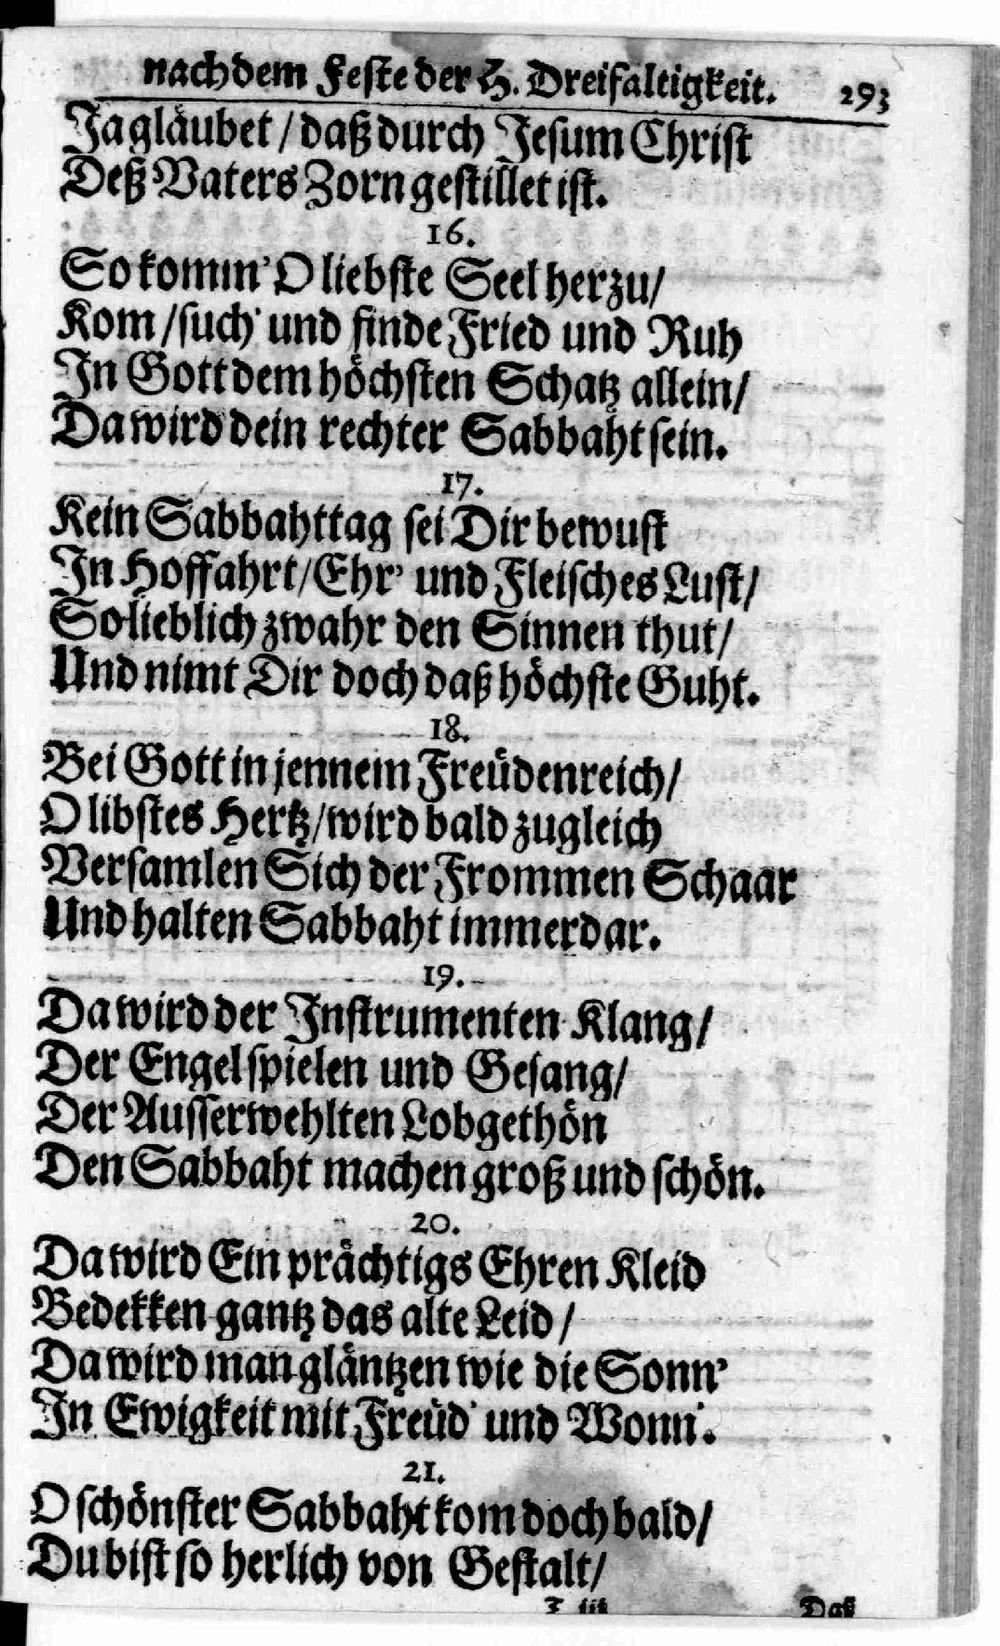 nach dem Feste der H. Dreifaltigkeit. 293
Ja gläubet / daß durch Jesum Christ
Deß Vaters Zorn gestillet ist.
16.
So komm' O liebste Seel herzu /
Kom / such' und finde Fried und Ruh
In Gott dem höchsten Schatz allein /
Da wird dein rechter Sabbaht sein.
17.
Kein Sabbahttag sei Dir bewust
In Hoffahrt / Ehr' und Fleisches Lust /
So lieblich zwahr den Sinnen thut /
Und nimt Dir doch daß höchste Guht.
18.
Bei Gott in jennem Freüdenreich /
O libstes Hertz / wird bald zugleich
Versamlen Sich der Frommen Schaar
Und halten Sabbaht immerdar.
19.
Da wird der Instrumenten Klang /
Der Engel spielen und Gesang /
Der Ausserwehlten Lobgethön
Den Sabbaht machen groß und schön.
20.
Da wird Ein prächtigs Ehren Kleid
Bedekken gantz das alte Leid /
Da wird man gläntzen wie die Sonn'
In Ewigkeit mit Freüd' und Wonn'.
21.
O schönster Sabbaht kom doch bald /
Du bist so herlich von Gestalt /
T iij Daß